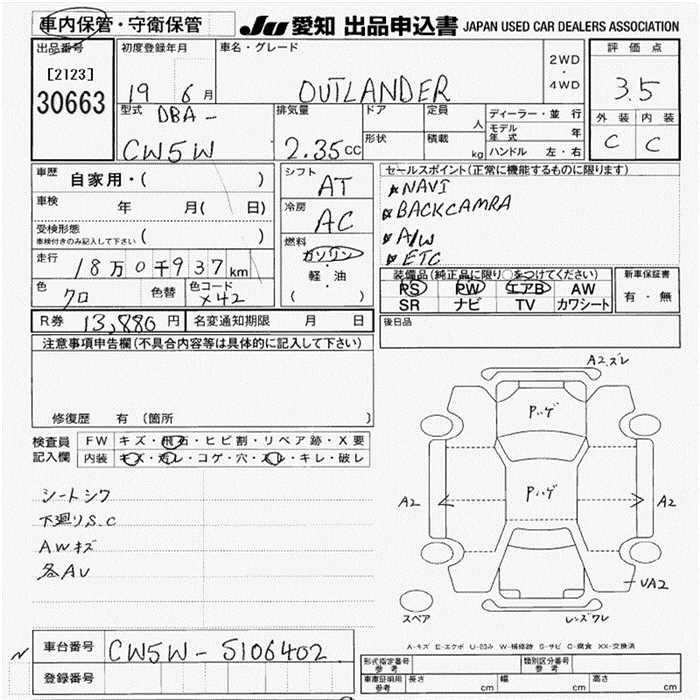 車内保管・守衛保管 JU 愛知 出品申込書 JAPAN USED CAR DEALERS ASSOCIATION
出品番号 初度登録年月 車名・グレード 2WD ・ 4WD 評価点
[2123]
30663
19 6月 OUTLANDER 3.5
型式 DBA- 排気量 ドア 定員 人 ディーラー・並行 外装 内装
モデル年式 年
CW5W 2.35cc 形状 積載 kg ハンドル 左・右 C C
車歴 自家用・( ) シフト AT セールスポイント(正常に機能するものに限ります)
NAVI
車検 年 月( 日) 冷房 AC BACKCAMRA
受検形態 ( ) A/W
車検付きのみ記入して下さい 燃料 ETC
走行 18万0千937km ガソリン 装備品(純正品に限り○をつけてください) 新車保証書
軽・油 PS PW エアB AW 有・無
色 クロ 色替 色コード X42 ( ) SR ナビ TV カワシート
R券 13,880円 名変通知期限 月 日 後日品
注意事項申告欄(不具合内容等は具体的に記入して下さい)
A2.ズレ
Pハゲ
修復歴 有 (箇所 )
検査員 FW キズ・飛石・ヒビ割・リペア跡・X要
記入欄 内装 キズ・汚レ・コゲ・穴・スレ・キレ・破レ
Pハゲ
シートシワ
A2 A2
下廻りS.C
AWキズ
各AU
UA2
スペア レンズワレ
車台番号 CW5W-5106402
A-キズ E-エクボ U-凹み W-補修跡 S-サビ C-腐食 XX-交換済
登録番号
形式指定番号 参考 類別区分番号 参考
車庫証明用 参考 長さ cm 幅 cm 高さ cm